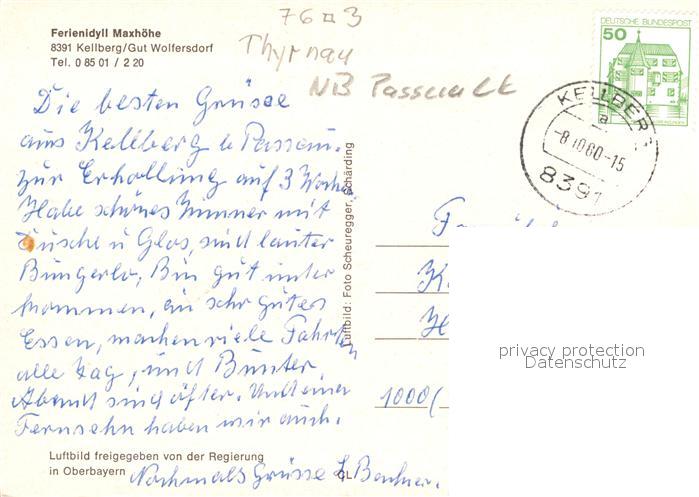 76 ¤ 3
Thyrnau
NB Passau Lk
Ferienidyll Maxhöhe
8391 Kellberg/Gut Wolfersdorf
Tel. 0 85 01 / 2 20
DEUTSCHE BUNDESPOST
50
KELLBERG
a
-8.10.80-15
8391
Die besten Grüsse
aus Kellberg b Passau.
zur Erhollung auf 3 Woche
Habe schönes Zimmer mit
Dusche u Glos, sind lauter
Bungerlo, Bin gut unter
kommen, ein sehr gutes
Essen, machen viele Fahrten
alle Tag, und Bunter
Abend sind öfter. Und einen
Fernsehn haben wir auch.
Nochmals Grüsse
Luftbild: Foto Scheuregger, Schärding
1000
Luftbild freigegeben von der Regierung
in Oberbayern GL
privacy protection
Datenschutz